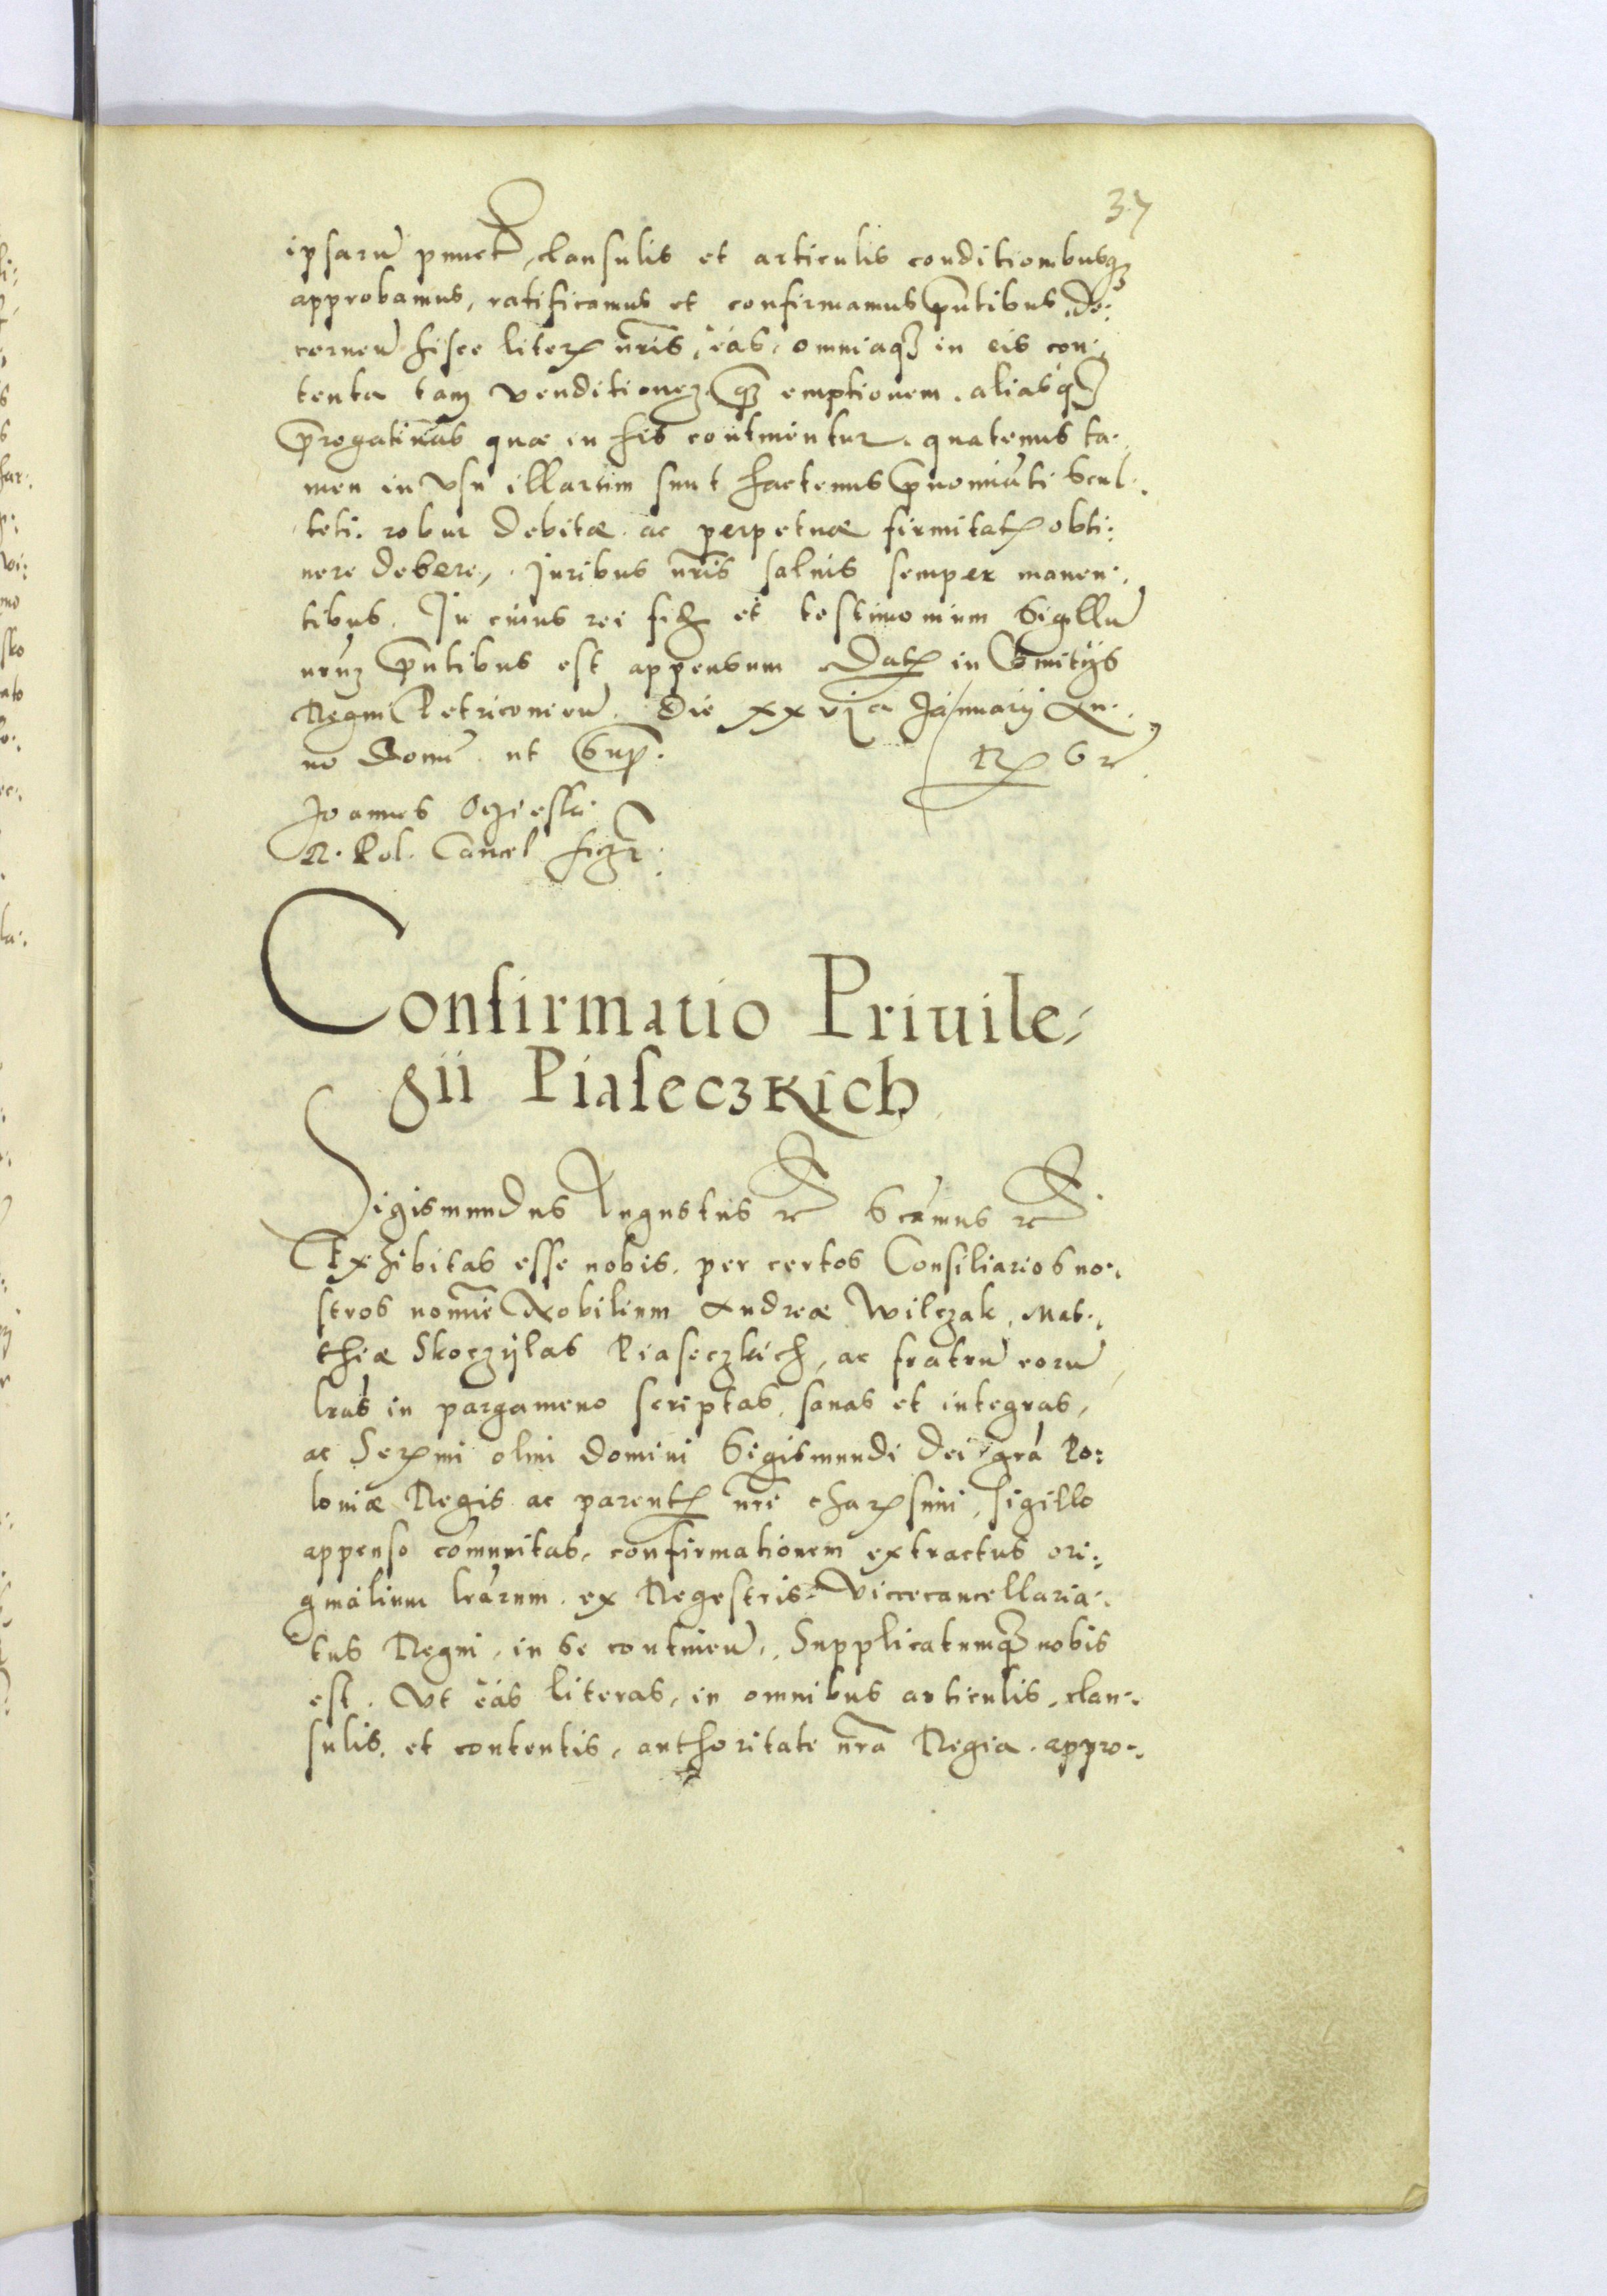 37
ipsaru punct, clausulis et articulis conditionibusq3
approbamus, ratificamus et confirmamus pntibus, de:
cernen hisce liter nris, eas, omniaq3 in eis con:
tenta tam venditionem q3 emptionem, aliasq3
prrogatiuas quæ in his continentur, quatenus ta:
men in vsu illarum sunt hactenus pnominati Scul:
teti. robur debitæ ac perpetuæ firmitat obti:
nere debere, Iuribus nris saluis semper manen:
tibus. In cuius rei fid et testimonium Sigillu
nrum pntibus est appensum Dat in Comitijs
Regni Petricouien. Die xxvja Januarij An:
no Domi ut Sup. R Sr
Joannes Oczieski
R. Pol. Cancel
Confirmatio Priuile:
gii Piaseczkich
Sigismundus Augustus rc Scimus rc
Exhibitas esse nobis, per certos Consiliarios no:
stros nomine Nobilium Andreæ Wilczak, Mat:
thiæ Skoczÿlas Piaseczkich, ac fratru eoru
lras in pargameno scriptas, sanas et integras,
ac Sermi olim domini Sigismundi dei gra Po:
loniæ Regis ac parent nri charssimi, sigillo
appenso comunitas, confirmationem extractus ori:
ginalium lrarum, ex Regestris Vicecancellaria:
tus Regni, in se continen, Supplicatumq3 nobis
est. Vt eas literas, in omnibus articulis, clau:
sulis, et contentis, authoritate nra Regia, appro: